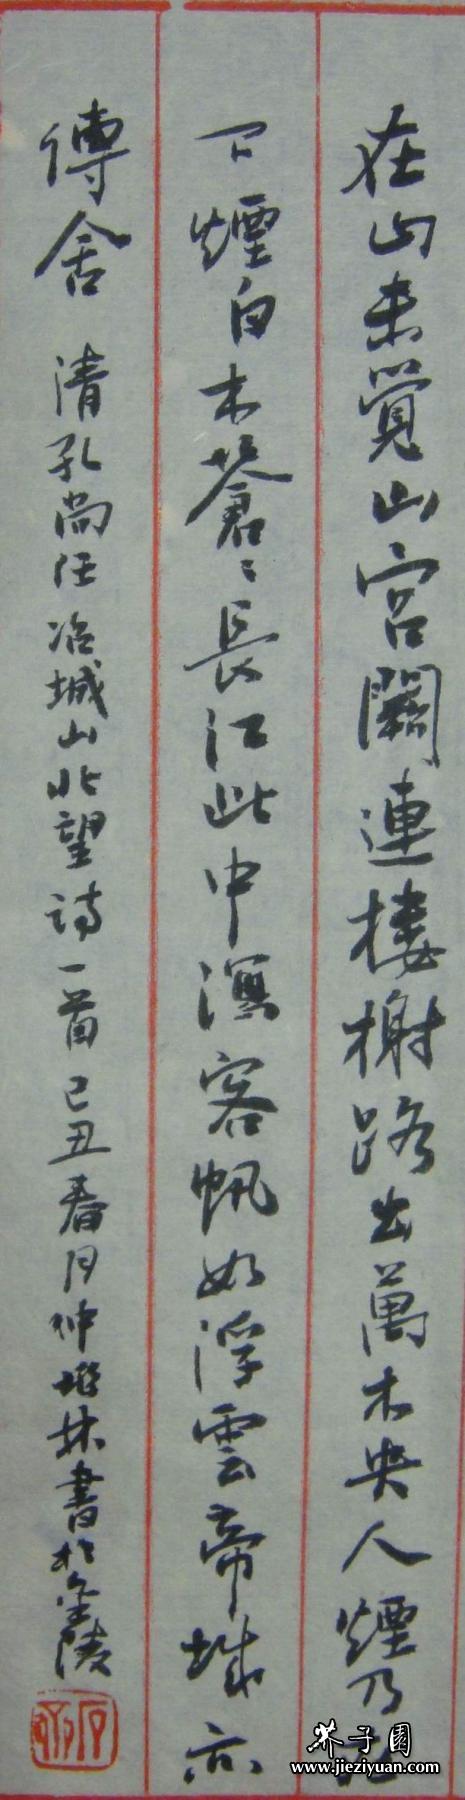 在山未覺山宮闕連樓榭路出萬木央人煙乃
下煙白木蒼〻長江此中溟客帆如浮雲帝城亦
傳舍 清孔尚任冶城山北望詩一首己丑春月仲林書於金陵
芥子園
www.jieziyuan.com